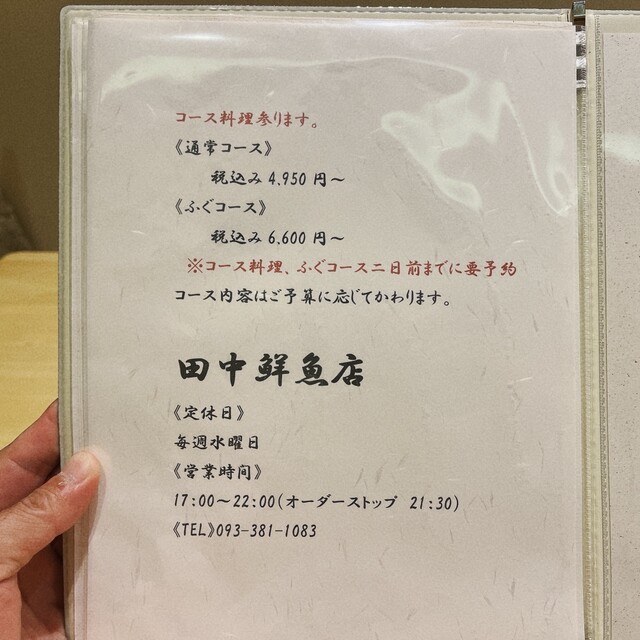 コース料理参ります。
《通常コース》
税込み 4,950 円～
《ふぐコース》
税込み 6,600 円～
※コース料理、ふぐコース二日前までに要予約
コース内容はご予算に応じてかわります。
田中鮮魚店
《定休日》
毎週水曜日
《営業時間》
17:00～22:00(オーダーストップ 21:30)
《TEL》093-381-1083